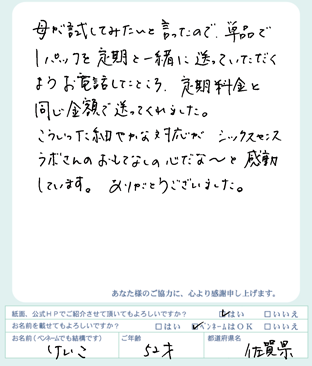 母が試してみたいと言ったので、単品で
1パックを定期と一緒に送っていただく
ようお電話したところ、定期料金と
同じ金額で送ってくれました。
こういった細やかな対応が シックスセンス
ラボさんのおもてなしの心だな〜と感動
しています。 ありがとうございました。
あなた様のご協力に、心より感謝申し上げます。
紙面、公式HPでご紹介させて頂いてもよろしいですか？ ☑はい □いいえ
お名前を載せてもよろしいですか？ □はい ☑ペンネームはOK □いいえ
お名前(ペンネームでも結構です) けいこ ご年齢 52才 都道府県名 佐賀県